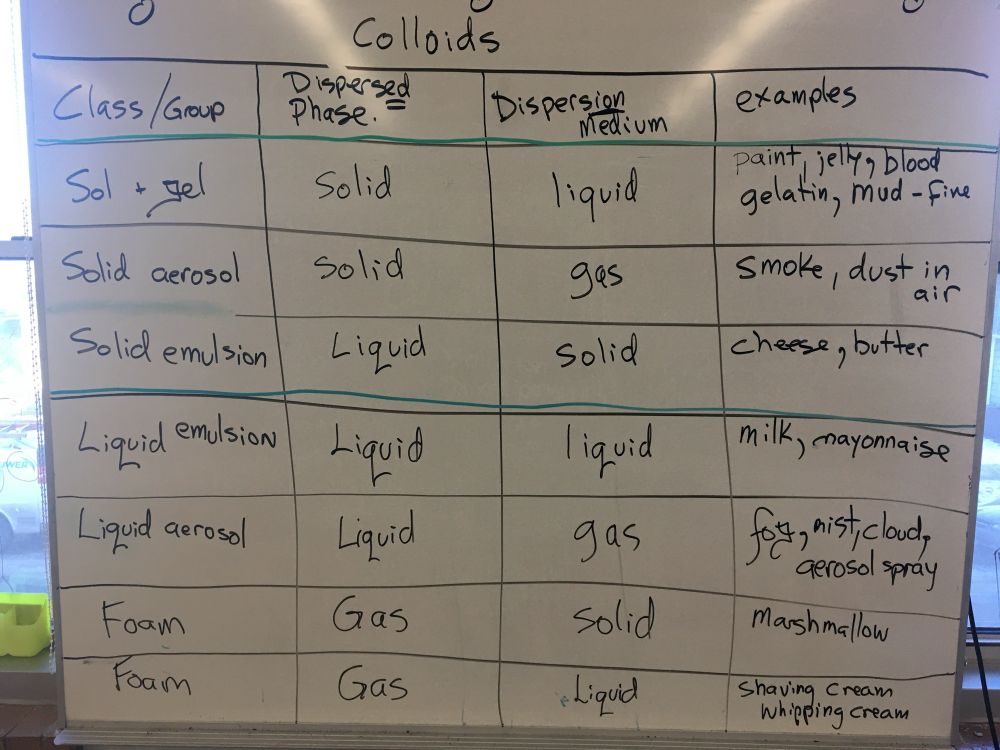 Colloids
Class/Group
Dispersed
Phase.
Dispersion
Medium
examples
Sol + gel
Solid
liquid
paint, jelly, blood
gelatin, mud - fine
Solid aerosol
Solid
gas
Smoke, dust in
air
Solid emulsion
Liquid
Solid
cheese, butter
Liquid emulsion
Liquid
liquid
milk, mayonnaise
Liquid aerosol
Liquid
gas
fog, mist, cloud,
aerosol spray
Foam
Gas
Solid
Marshmallow
Foam
Gas
Liquid
Shaving cream
Whipping cream